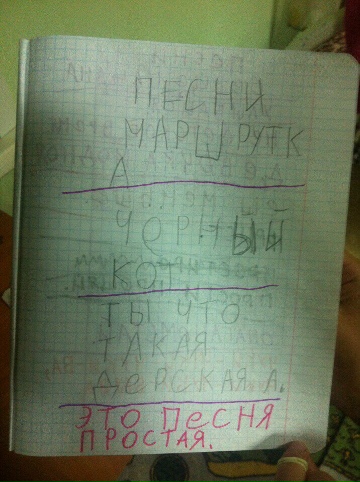 ПЕСНИ
МАРШРУТК
А
ЧОРНЫЙ
КОТ
ТЫ ЧТО
ТАКАЯ
ДЕРСКАЯ А.
ЭТО ПЕСНЯ
ПРОСТАЯ.